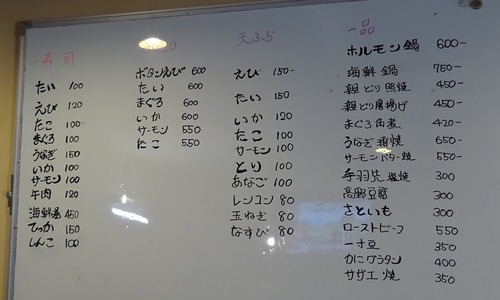 寿司
たい 100
えび 120
たこ 100
まぐろ 100
うなぎ 150
いか 100
サーモン 100
牛肉 120
海鮮 450
てっか 150
しんこ 100
ボタンえび 600
たい 600
まぐろ 600
いか 600
サーモン 550
たこ 550
天ぷら
えび 150-
たい 150
いか 120
たこ 100
サーモン 100
とり 100
あなご 100
レンコン 80
玉ねぎ 80
なすび 80
一品
ホルモン鍋 600-
海鮮鍋 750-
親どり照焼 450-
親どり唐揚げ 450-
まぐろ角煮 420-
うなぎ蒲焼 650-
サーモンバター焼 550-
手羽先塩焼 300
高野豆腐 300
さといも 300
ローストビーフ 550
一寸豆 350
かにグラタン 400
サザエ焼 350